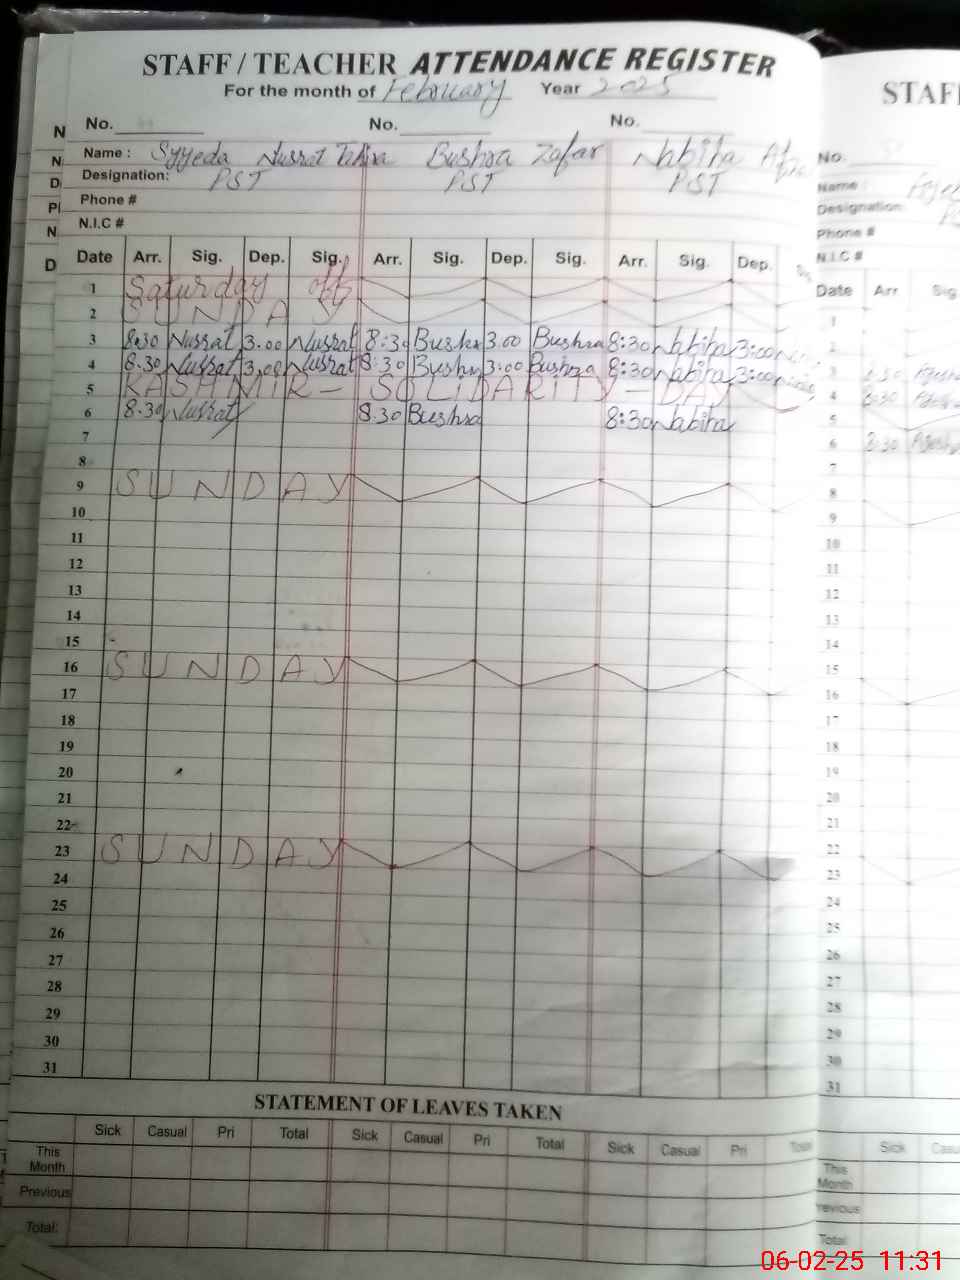 STAFF / TEACHER ATTENDANCE REGISTER
For the month of February Year 2025
No. No. No.
Name : Syyeda Nusrat Tahira Bushra Zafar Nabiha
Designation: PST PST PST
Phone #
N.I.C #
Date Arr. Sig. Dep. Sig. Arr. Sig. Dep. Sig. Arr. Sig. Dep.
1 Saturday off
2 SUNDAY
3 8.30 Nusrat 3.00 Nusrat 8:30 Bushra 3.00 Bushra 8:30 Nabiha 3:00
4 8.30 Nusrat 3.00 Nusrat 8:30 Bushra 3:00 Bushra 8:30 Nabiha 3:00
5 KASHMIR - SOLIDARITY - DAY
6 8.30 Nusrat 8.30 Bushra 8:30 Nabiha
7
8
9 SUNDAY
10
11
12
13
14
15
16 SUNDAY
17
18
19
20
21
22
23 SUNDAY
24
25
26
27
28
29
30
31
STATEMENT OF LEAVES TAKEN
Sick Casual Pri Total Sick Casual Pri Total Sick Casual Pri Total
This Month
Previous
Total:
STAF
No.
Name :
Designation
Phone #
N.I.C #
Date Arr Sig.
1
2
3 8.30
4 8.30
5
6 8:30
7
8
9
10
11
12
13
14
15
16
17
18
19
20
21
22
23
24
25
26
27
28
29
30
31
Sick Casu
This Month
revious
Total
06-02-25 11:31